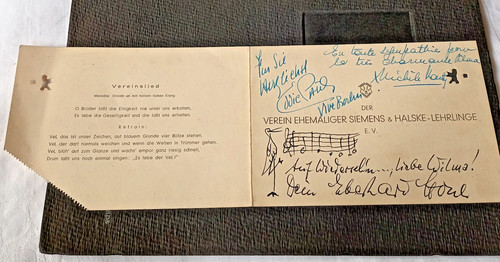 Vereinslied
Melodie: Strömt herbei
O Brüder laßt die Einigkeit nie unter uns erkalten,
Es lebe die Geselligkeit und die laßt uns erhalten.
Refrain:
Vel, das ist unser Zeichen, auf blauem Grunde vier Blitze stehen.
Vel, der darf niemals weichen und wenn die Welten in Trümmer gehen.
Vel, blüh' auf zum Glanze und wachs' empor ganz riesig schnell,
Drum laßt uns noch einmal singen: „Es lebe der Vel!"
Für Sie
herzlichst
Vive Berlin
En toute sympathie pour
la très charmante Wilma
DER
VEREIN EHEMALIGER SIEMENS & HALSKE-LEHRLINGE
E. V.
Auf Wiedersehn..., liebe Wilma!
Dein Eberhard